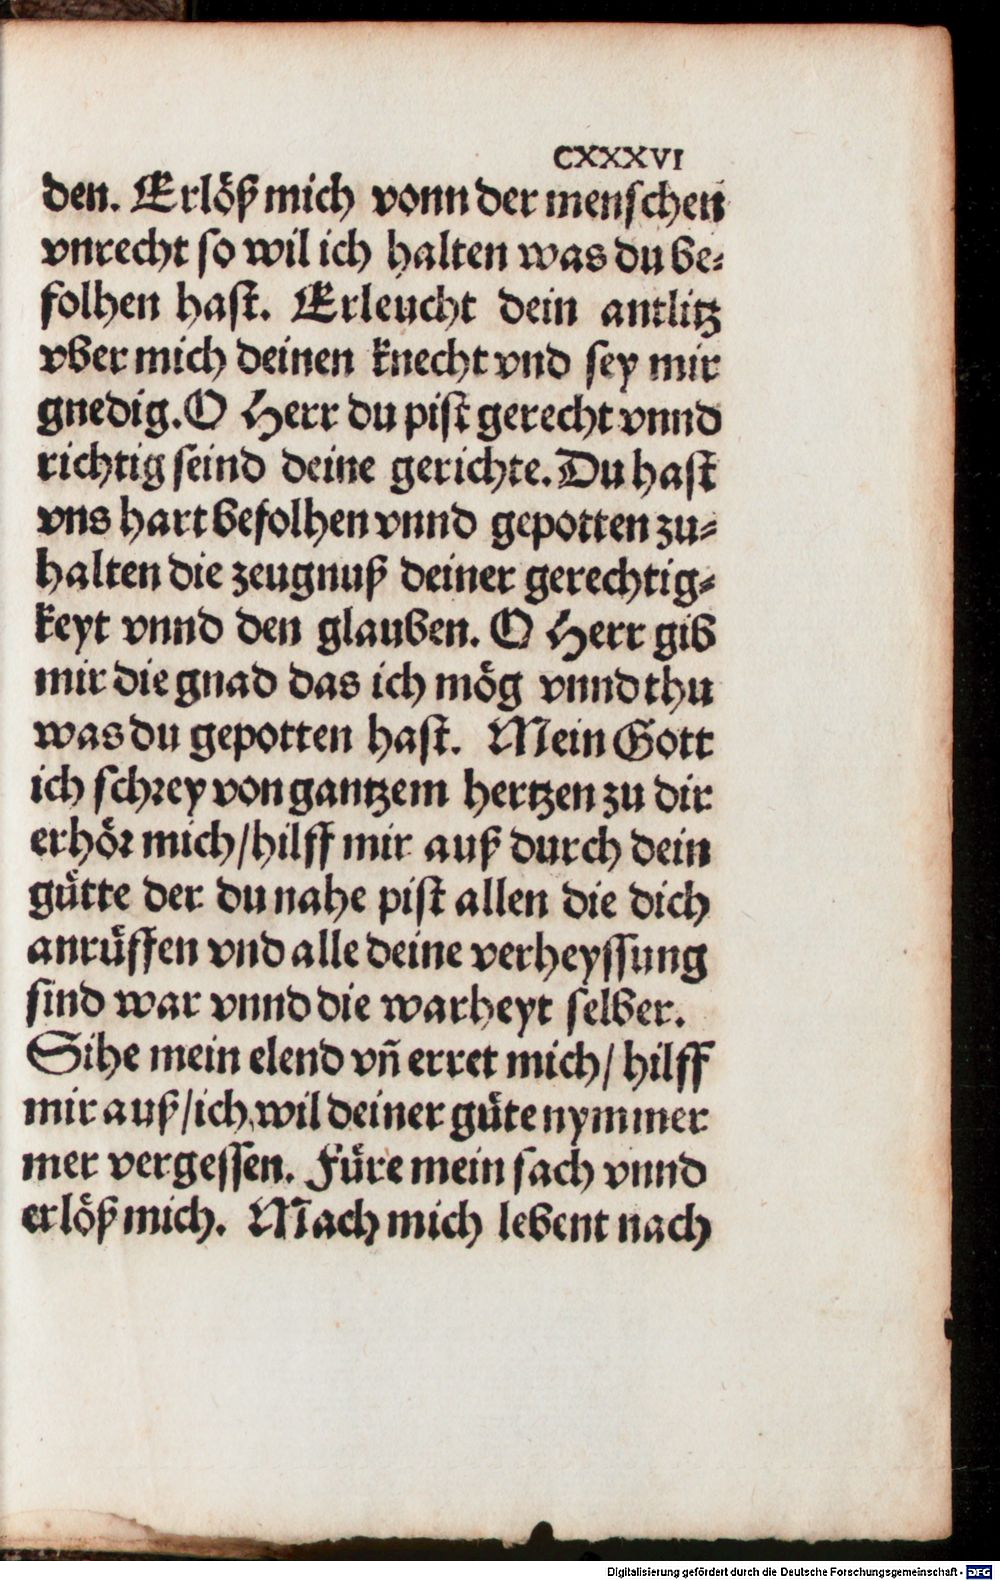 CXXXVI
den. Erlöß mich vonn der menschen
vnrecht so wil ich halten was du be⸗
folhen hast. Erleucht dein antlitz
vber mich deinen knecht vnd sey mir
gnedig. O Herr du pist gerecht vnnd
richtig seind deine gerichte. Du hast
vns hart befolhen vnnd gepotten zu⸗
halten die zeugnuß deiner gerechtig⸗
keyt vnnd den glauben. O Herr gib
mir die gnad das ich mög vnnd thu
was du gepotten hast. Mein Gott
ich schrey von gantzem hertzen zu dir
erhör mich/hilff mir auß durch dein
gütte der du nahe pist allen die dich
anrüffen vnd alle deine verheyssung
sind war vnnd die warheyt selber.
Sihe mein elend vñ erret mich/ hilff
mir auß/ich wil deiner güte nymmer
mer vergessen. Füre mein sach vnnd
erlöß mich. Mach mich lebent nach
Digitalisierung gefördert durch die Deutsche Forschungsgemeinschaft - DFG